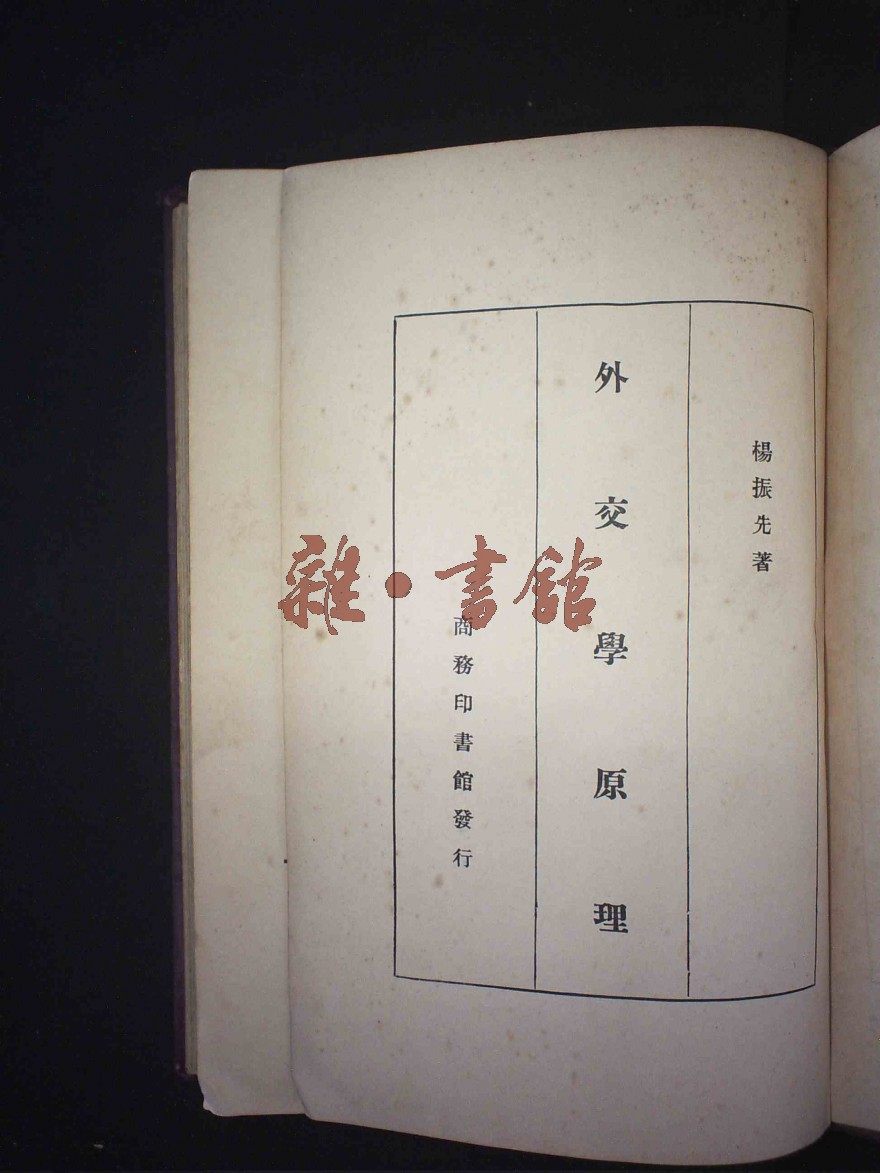 楊振先著
外交學原理
商務印書館發行
雜·書館